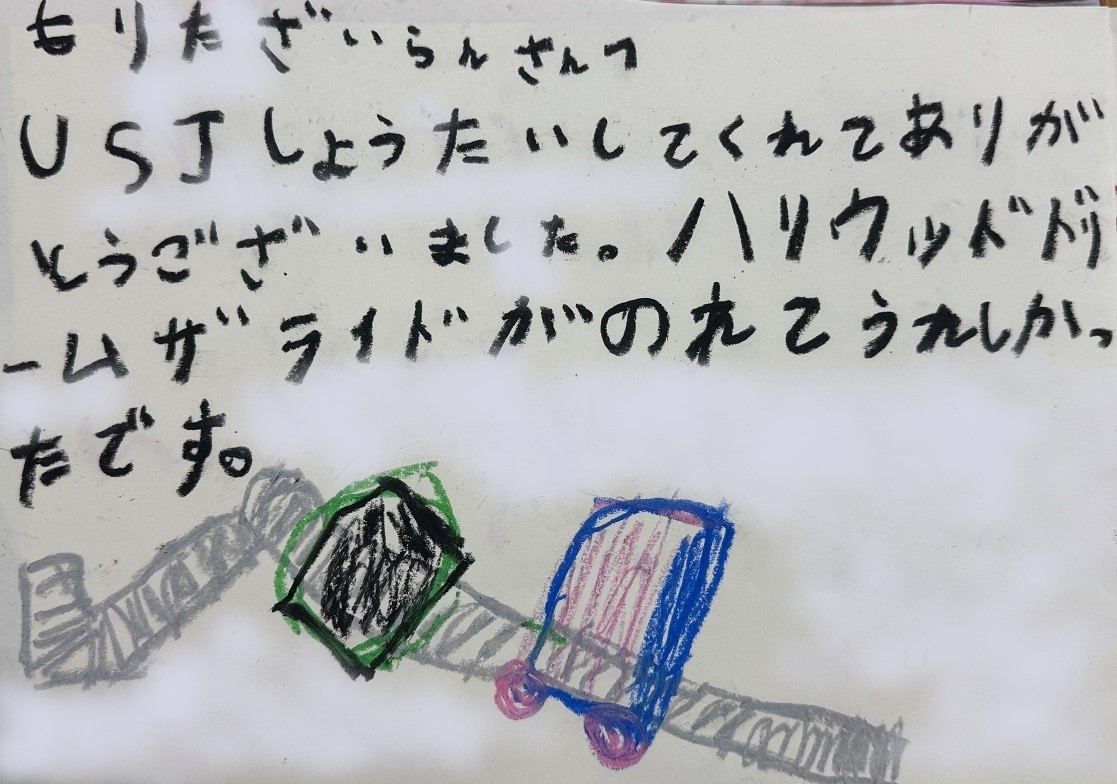 もりたざいらんさんへ
USJしょうたいしてくれてありが
とうございました。ハリウッドドリ
ームザライドがのれてうれしかっ
たです。